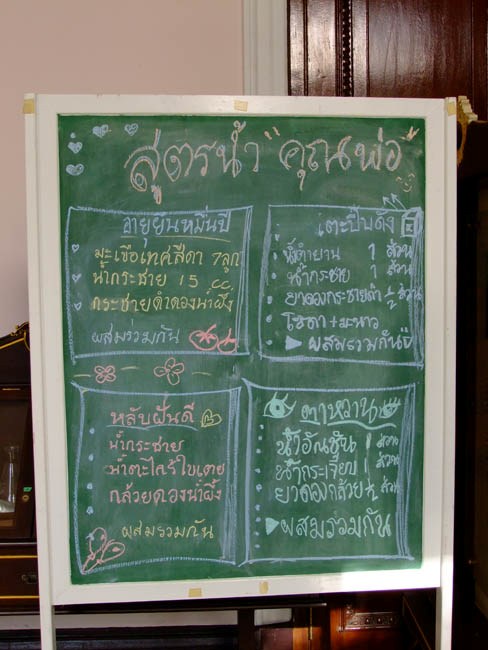 สูตรน้ำ "คุณพ่อ"
อายุยืนหมื่นปี
มะเขือเทศสีดา 7 ลูก
น้ำกระชาย 15 cc
กระชายดำดองน้ำผึ้ง
ผสมรวมกัน
เตะปี๊บดัง
น้ำรำยาน 1 ส่วน
น้ำกระชาย 1 ส่วน
ยาดองกระชายดำ ½ ส่วน
โซดา + มะนาว
ผสมรวมกัน
หลับฝันดี
น้ำกระชาย
น้ำตะไคร้ใบเตย
กล้วยดองน้ำผึ้ง
ผสมรวมกัน
ตาหวาน
น้ำอัญชัน 1 ส่วน
น้ำกระเจี๊ยบ 1 ส่วน
ยาดองกล้วย ½ ส่วน
ผสมรวมกัน